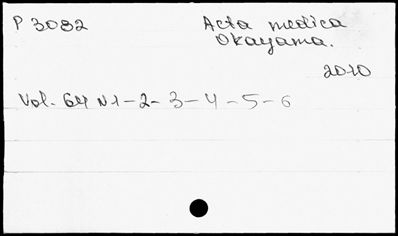 P 3082 Acta medica
Okayama.
2010
Vol. 64 N1-2-3-4-5-6